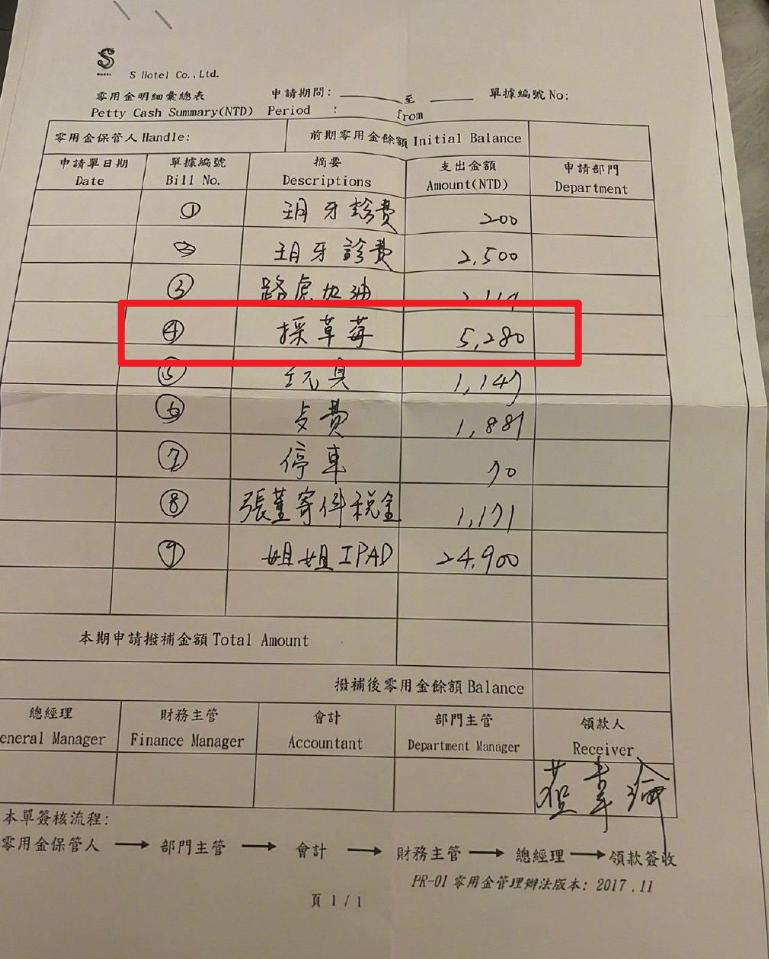 S
S Hotel Co., Ltd.
零用金明細彙總表 申請期間: ____ 至 ____ 單據編號 No:
Petty Cash Summary(NTD) Period : from
零用金保管人 Handle: 前期零用金餘額 Initial Balance
申請單日期 單據編號 摘要 支出金額 申請部門
Date Bill No. Descriptions Amount(NTD) Department
① 玥牙診費 200
② 玥牙診費 2,500
③ 路虎加油
④ 採草莓 5,280
⑤ 玩具 1,147
⑥ 費 1,881
⑦ 停車 70
⑧ 張董寄件稅金 1,171
⑨ 姐姐IPAD 24,900
本期申請撥補金額 Total Amount
撥補後零用金餘額 Balance
總經理 財務主管 會計 部門主管 領款人
eneral Manager Finance Manager Accountant Department Manager Receiver
本單簽核流程:
零用金保管人 → 部門主管 → 會計 → 財務主管 → 總經理 → 領款簽收
PR-01 零用金管理辦法版本: 2017.11
頁 1/1